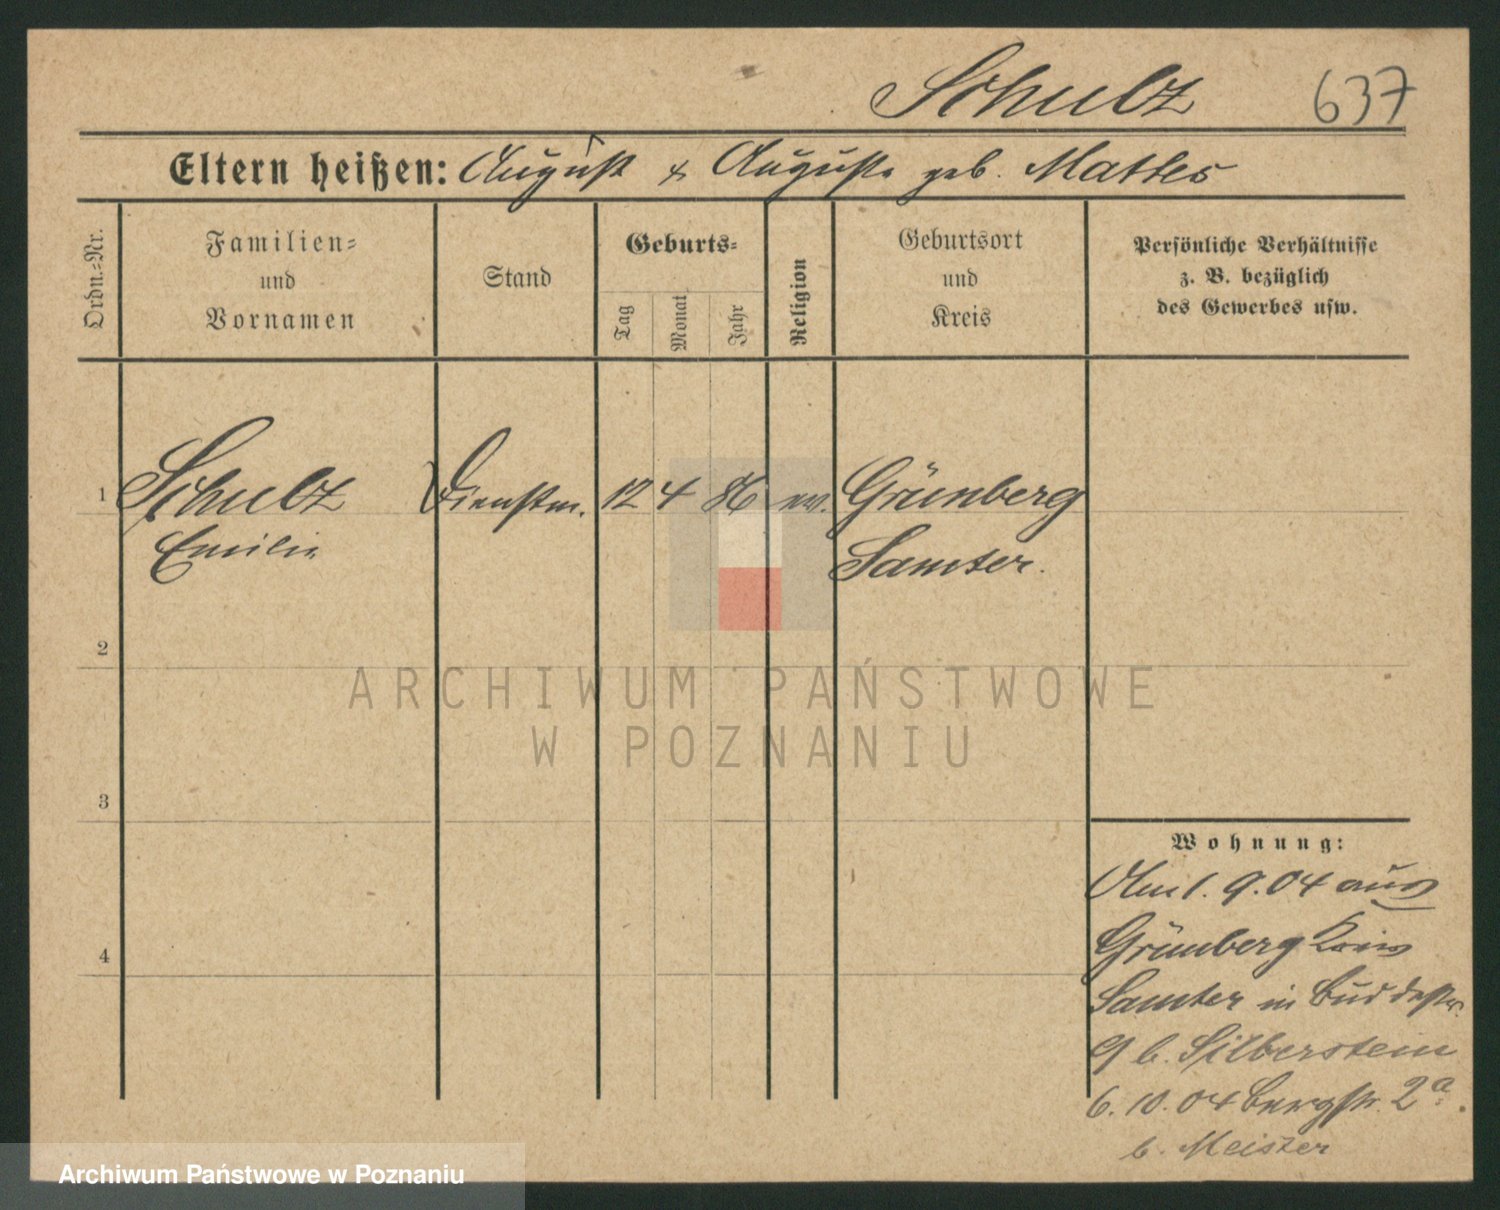 Schulz 637
Eltern heißen: August & Auguste geb. Mattes
Ordn.=Nr.
Familien=
und
Vornamen
Stand
Geburts=
Tag
Monat
Jahr
Religion
Geburtsort
und
Kreis
Persönliche Verhältnisse
z. B. bezüglich
des Gewerbes usw.
1 Schulz Dienstm. 12 4 86 ev. Grünberg
Emilie Samter.
2
3
4
Wohnung:
Am 1. 9. 04 aus
Grünberg Kreis
Samter in Buddestr.
9 b. Silberstein
6. 10. 04 Bergstr. 2a.
b. Meister
ARCHIWUM PAŃSTWOWE
W POZNANIU
Archiwum Państwowe w Poznaniu